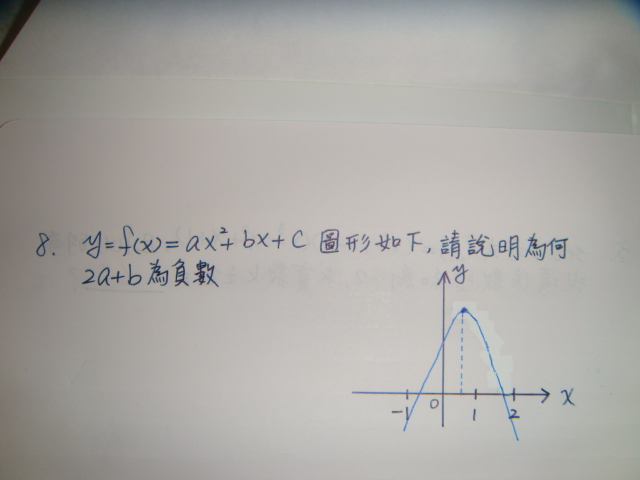 8. y=f(x)=ax²+bx+c 圖形如下,請說明為何
2a+b為負數
y
x
-1 0 1 2